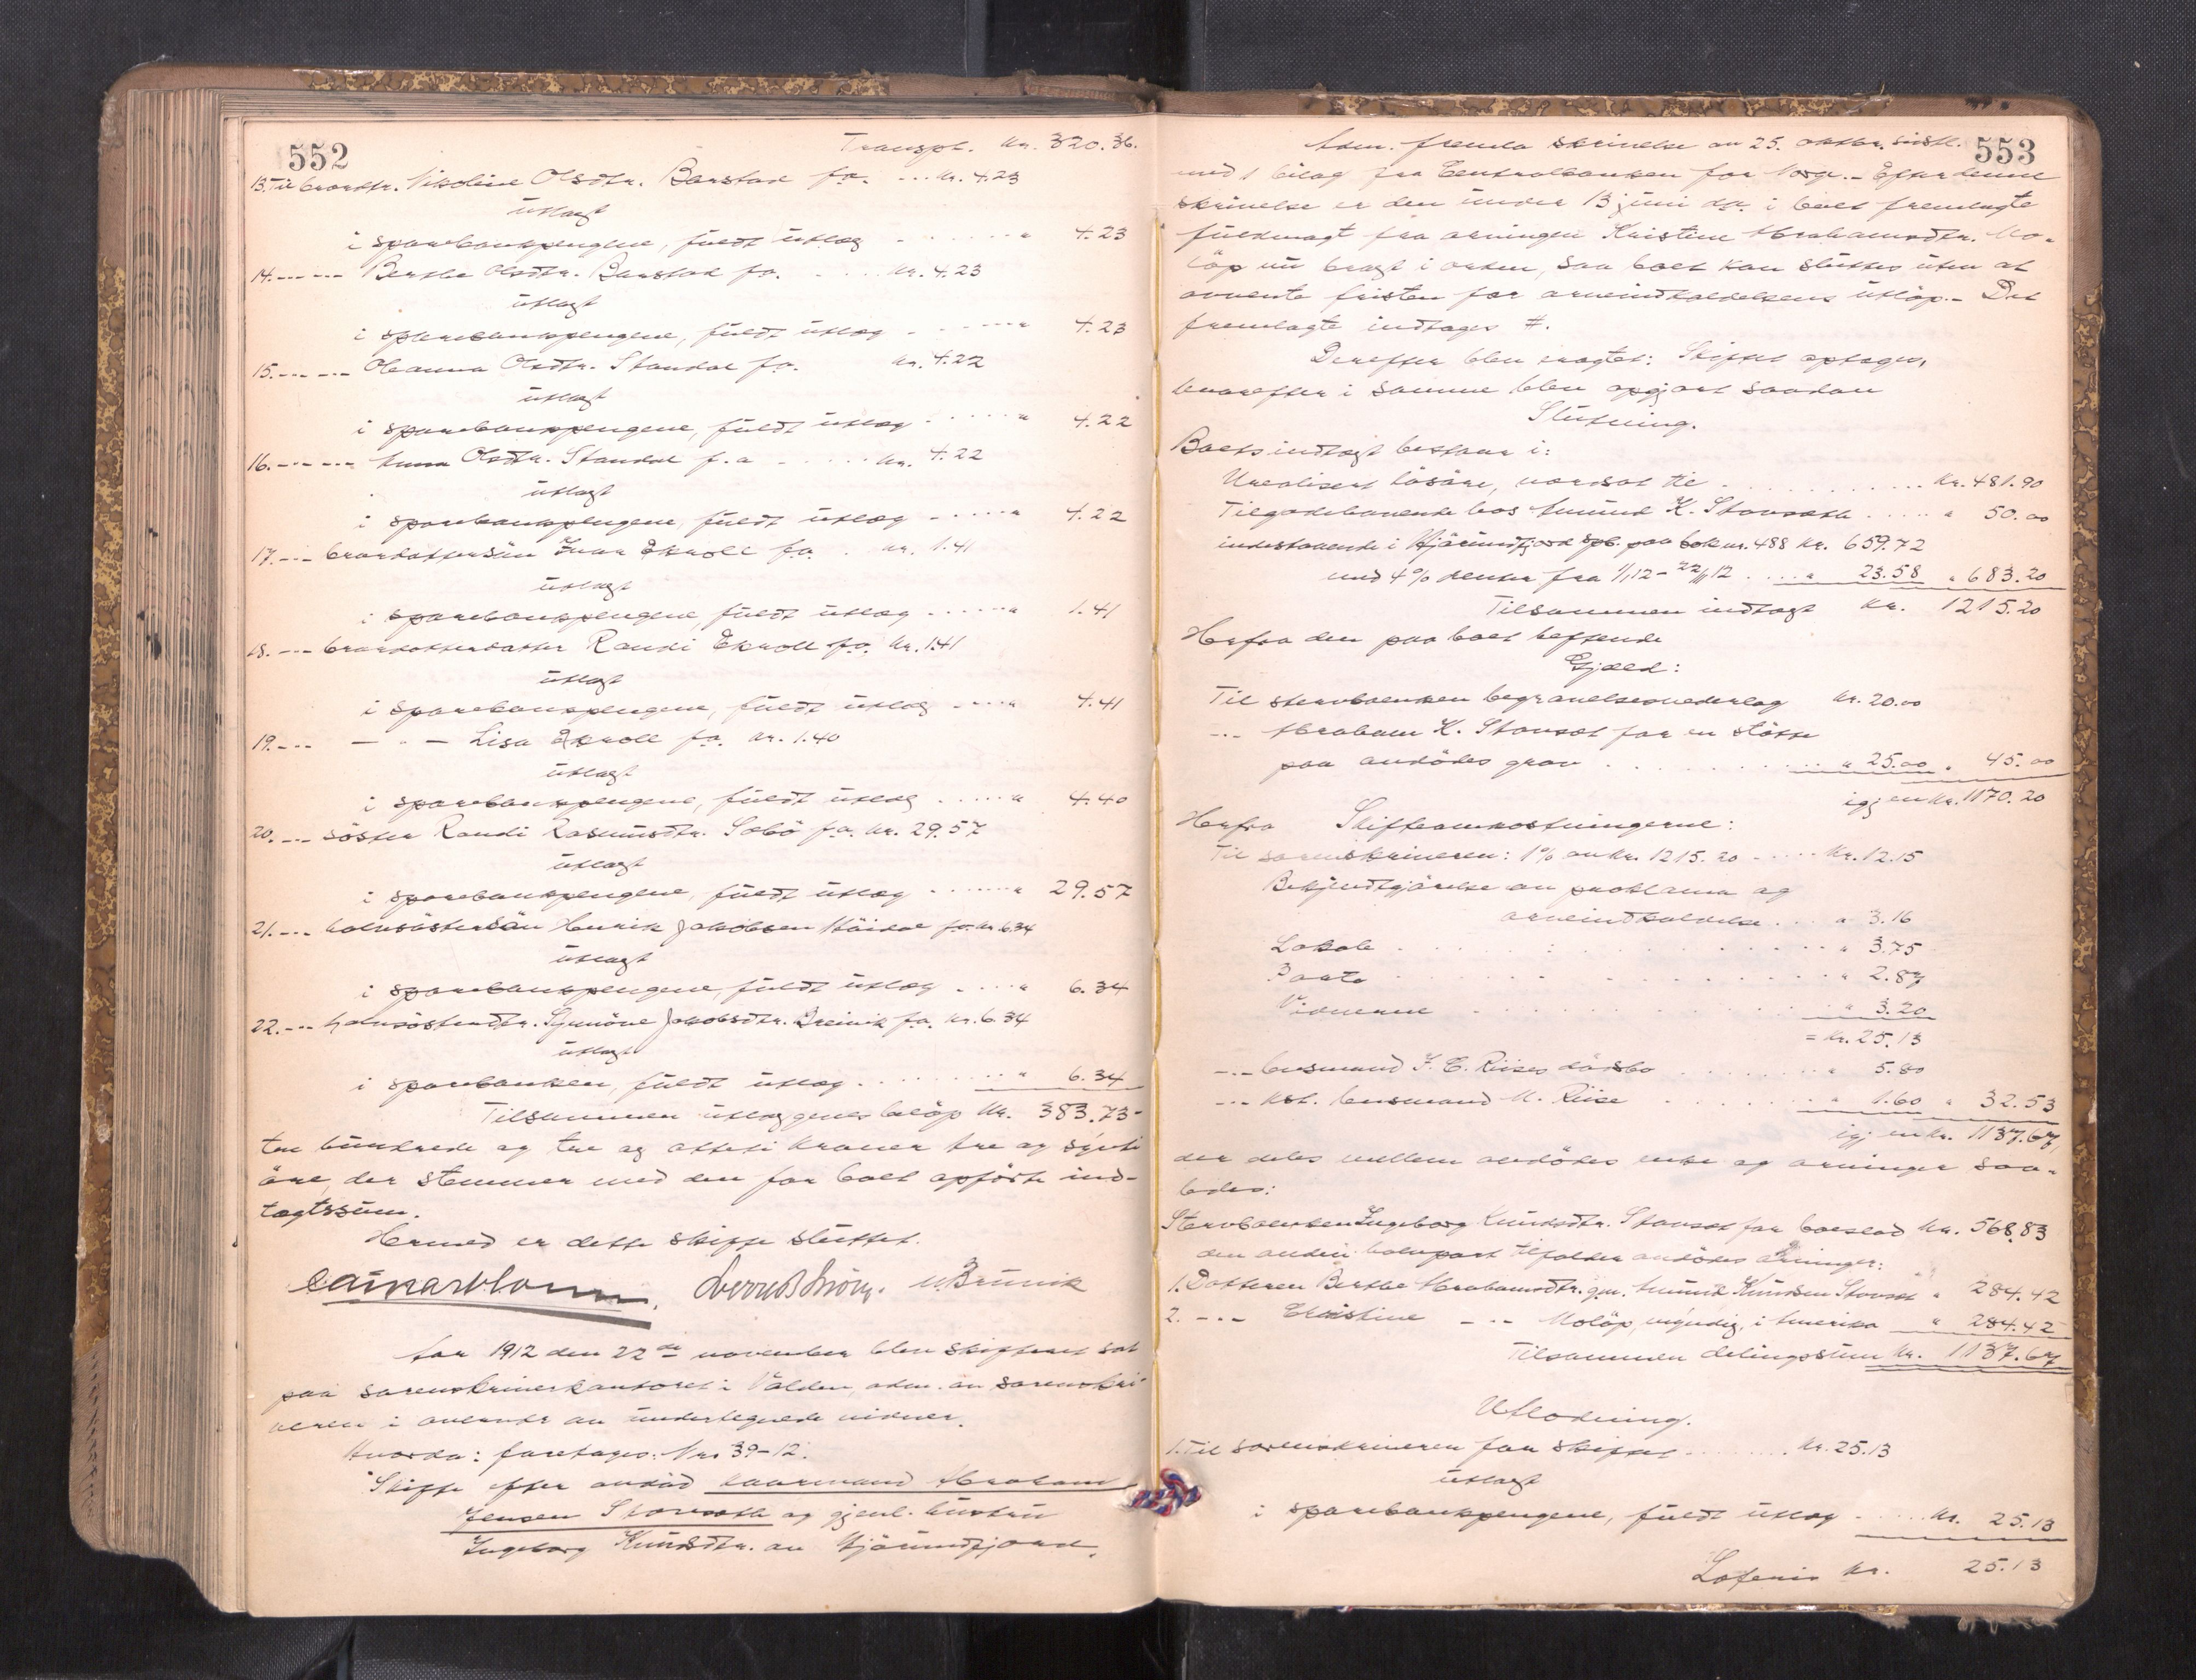 552
Transpt. kr. 320.36.
13. Til brordtr. Nikoline Olsdtr. Barstad f.a. ... kr. 4.23
utlagt
i sparebankpengene, fuldt utlæg - - - - " 4.23
14. --- --- Berthe Olsdtr. Barstad f.a. . . . kr. 4.23
utlagt
i sparebankpengene, fuldt utlæg - - - - " 4.23
15. --- --- Oleanna Olsdtr. Standal f.a. kr. 4.22
utlagt
i sparebankpengene, fuldt utlæg - - - - " 4.22
16. --- --- Anna Olsdtr. Standal f.a - - - kr. 4.22
utlagt
i sparebankpengene, fuldt utlæg - - - - " 4.22
17. --- brordattersön Ivar Ekroll f.a. . kr. 1.41
utlagt
i sparebankpengene, fuldt utlæg - - - - " 1.41
18. --- brordatterdatter Randi Ekroll f.a. kr. 1.41
utlagt
i sparebankpengene, fuldt utlæg - - - - " 1.41
19. --- — " — Lisa Ekroll f.a. kr. 1.40
utlagt
i sparebankpengene, fuldt utlæg - - - - " 1.40
20. --- söster Randi Rasmusdtr. Sæbö f.a. kr. 29.57
utlagt
i sparebankpengene, fuldt utlæg - - - - " 29.57
21. --- halvsöstersön Henrik Jakobsen f.a. kr. 6.34
utlagt
i sparebankpengene, fuldt utlæg - - - - " 6.34
22. --- halvsösterdtr. Jakobsdtr. f.a. kr. 6.34
utlagt
i sparebanken, fuldt utlæg - - - - " 6.34
Tilsammen utlæggenes belöp kr. 383.73-
tre hundrede og tre og otteti kroner tre og sytti
öre, der stemmer med den for boet opförte ind-
tægtssum.
Hermed er dette skifte sluttet.
M. Brunvik
Aar 1912 den 22de november blev skifteret sat
paa sorenskriverkontoret i Volden, adm. av sorenskri-
veren i overvær av undertegnede vidner.
Hvorda: foretages: Nr. 39-12.
Skifte efter avdöd kaarmand Abraham
Jensen Stavseth og gjenl. hustru
Ingeborg Knudsdtr. av Hjörundfjord.
553
Adm. fremla skrivelse av 25. oktbr. sistl.
med 1 bilag fra Centralbanken for Norge. - Efter denne
skrivelse er den under 13 juni d.a. i boet fremlagte
fuldmagt fra arvingen Kristine Abrahamsdtr. Mo-
löp nu bragt i orden, saa boet kan sluttes uten at
avvente fristen for arveindkaldelsens utlöp. - Det
fremlagte indtages #.
Derefter blev eragtet: Skiftet optages,
hvorefter i samme blev opgjort saadan
Slutning.
Boets indtægt bestaar i:
Urealisert lösöre, værdsat til . . . . . . . kr. 481.90
Tilgodehavende hos Amund K. Stavseth . . . . " 50.00
indestaaende i Hjörundfjord spb. paa bok nr. 488 kr. 659.72
med 4% renter fra 1/1 12 - 22/11 12 . . . " 23.58 " 683.20
Tilsammen indtægt kr. 1215.20
Herfra den paa boet heftende
Gjæld:
Til stervboenken begravelsesvederlag kr. 20.00
--- Abraham K. Stavset for en stötte
paa avdödes grav . . . . . . . " 25.00 " 45.00
igjen kr. 1170.20
Herfra Skifteomkostningerne:
Til sorenskriveren: 1% av kr. 1215.20 - - - - kr. 12.15
Bekjendtgjörelse av proklama og
arveindkaldelse . . . " 3.16
Lokale . . . . . . . " 3.75
Porto . . . . . . . " 2.87
Vidnerne . . . . . . . " 3.20
= kr. 25.13
--- lensmand J. E. Riises dödsbo . . . . . " 5.80
--- kst. lensmand M. Riise . . . . " 1.60 " 32.53
igjen kr. 1137.67,
der deles mellem avdödes enke og arvinger saa-
ledes:
Stervboenken Ingeborg Knudsdtr. Stavset for boeslod kr. 568.83
den anden halvpart tilfalder avdödes arvinger:
1. Datteren Berthe Abrahamsdtr. g.m. Amund Knudsen Stavset " 284.42
2. --- Christine --- Molöp, myndig, i Amerika " 284.42
Tilsammen delingssum kr. 1137.67
Utlodning.
1. Til sorenskriveren for skiftet . . . . . . kr. 25.13
utlagt
i sparebankpengene, fuldt utlæg . . . . kr. 25.13
Lateris kr. 25.13